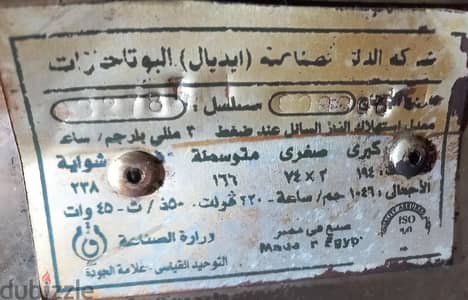 شركة الدلتا الصناعية (ايديال) البوتاجازات
مسلسل :
معدل استهلاك الغاز السائل عند ضغط ٣ مللي بار جم/ ساعة
كبرى صغرى متوسطة شواية
١٩٤ ٢ × ٧٤ ١٦٦ ٢٣٨
الأحمال : ١٠٤٦ جم/ساعة - ٢٢٠ فولت - ٥٠ذ/ث - ٤٥ وات
صنع فى مصر
Made Egypt
وزارة الصناعة
التوحيد القياسى - علامة الجودة
ISO
dubizzle